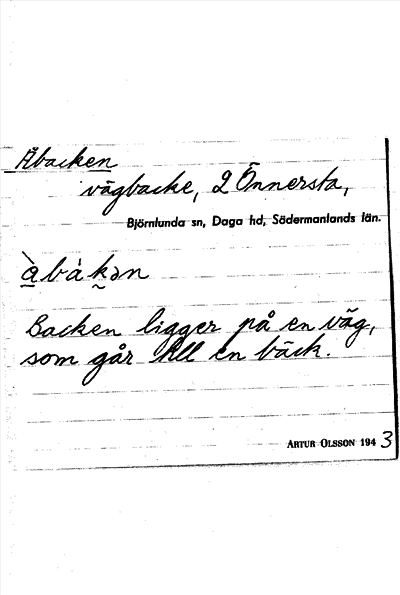 Åbacken
vägbacke, 2 Önnersta,
Björnlunda sn, Daga hd, Södermanlands län.
å̀bàkən
Backen ligger på en väg,
som går till en bäck.
ARTUR OLSSON 1943